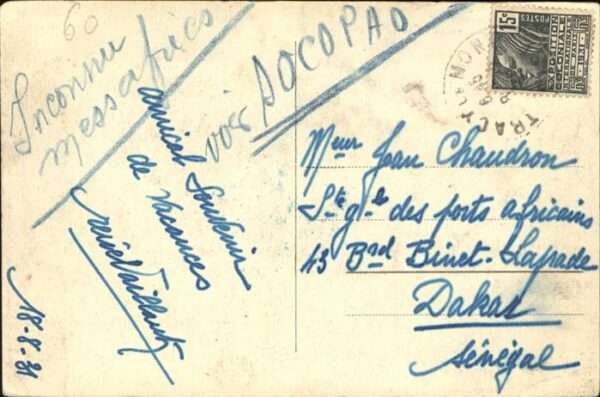 60
Inconnu
messafric
voir SOCOPAO
amical Souvenir
de Vacances
18-8-31
15c
POSTES
EXPOSITION
COLONIALE
INTERNATIONALE
TRACY LE MON
Meur Jean Chaudron
Sté gle des ports africains
43 Brd Binet-Laprade
Dakar
Sénégal